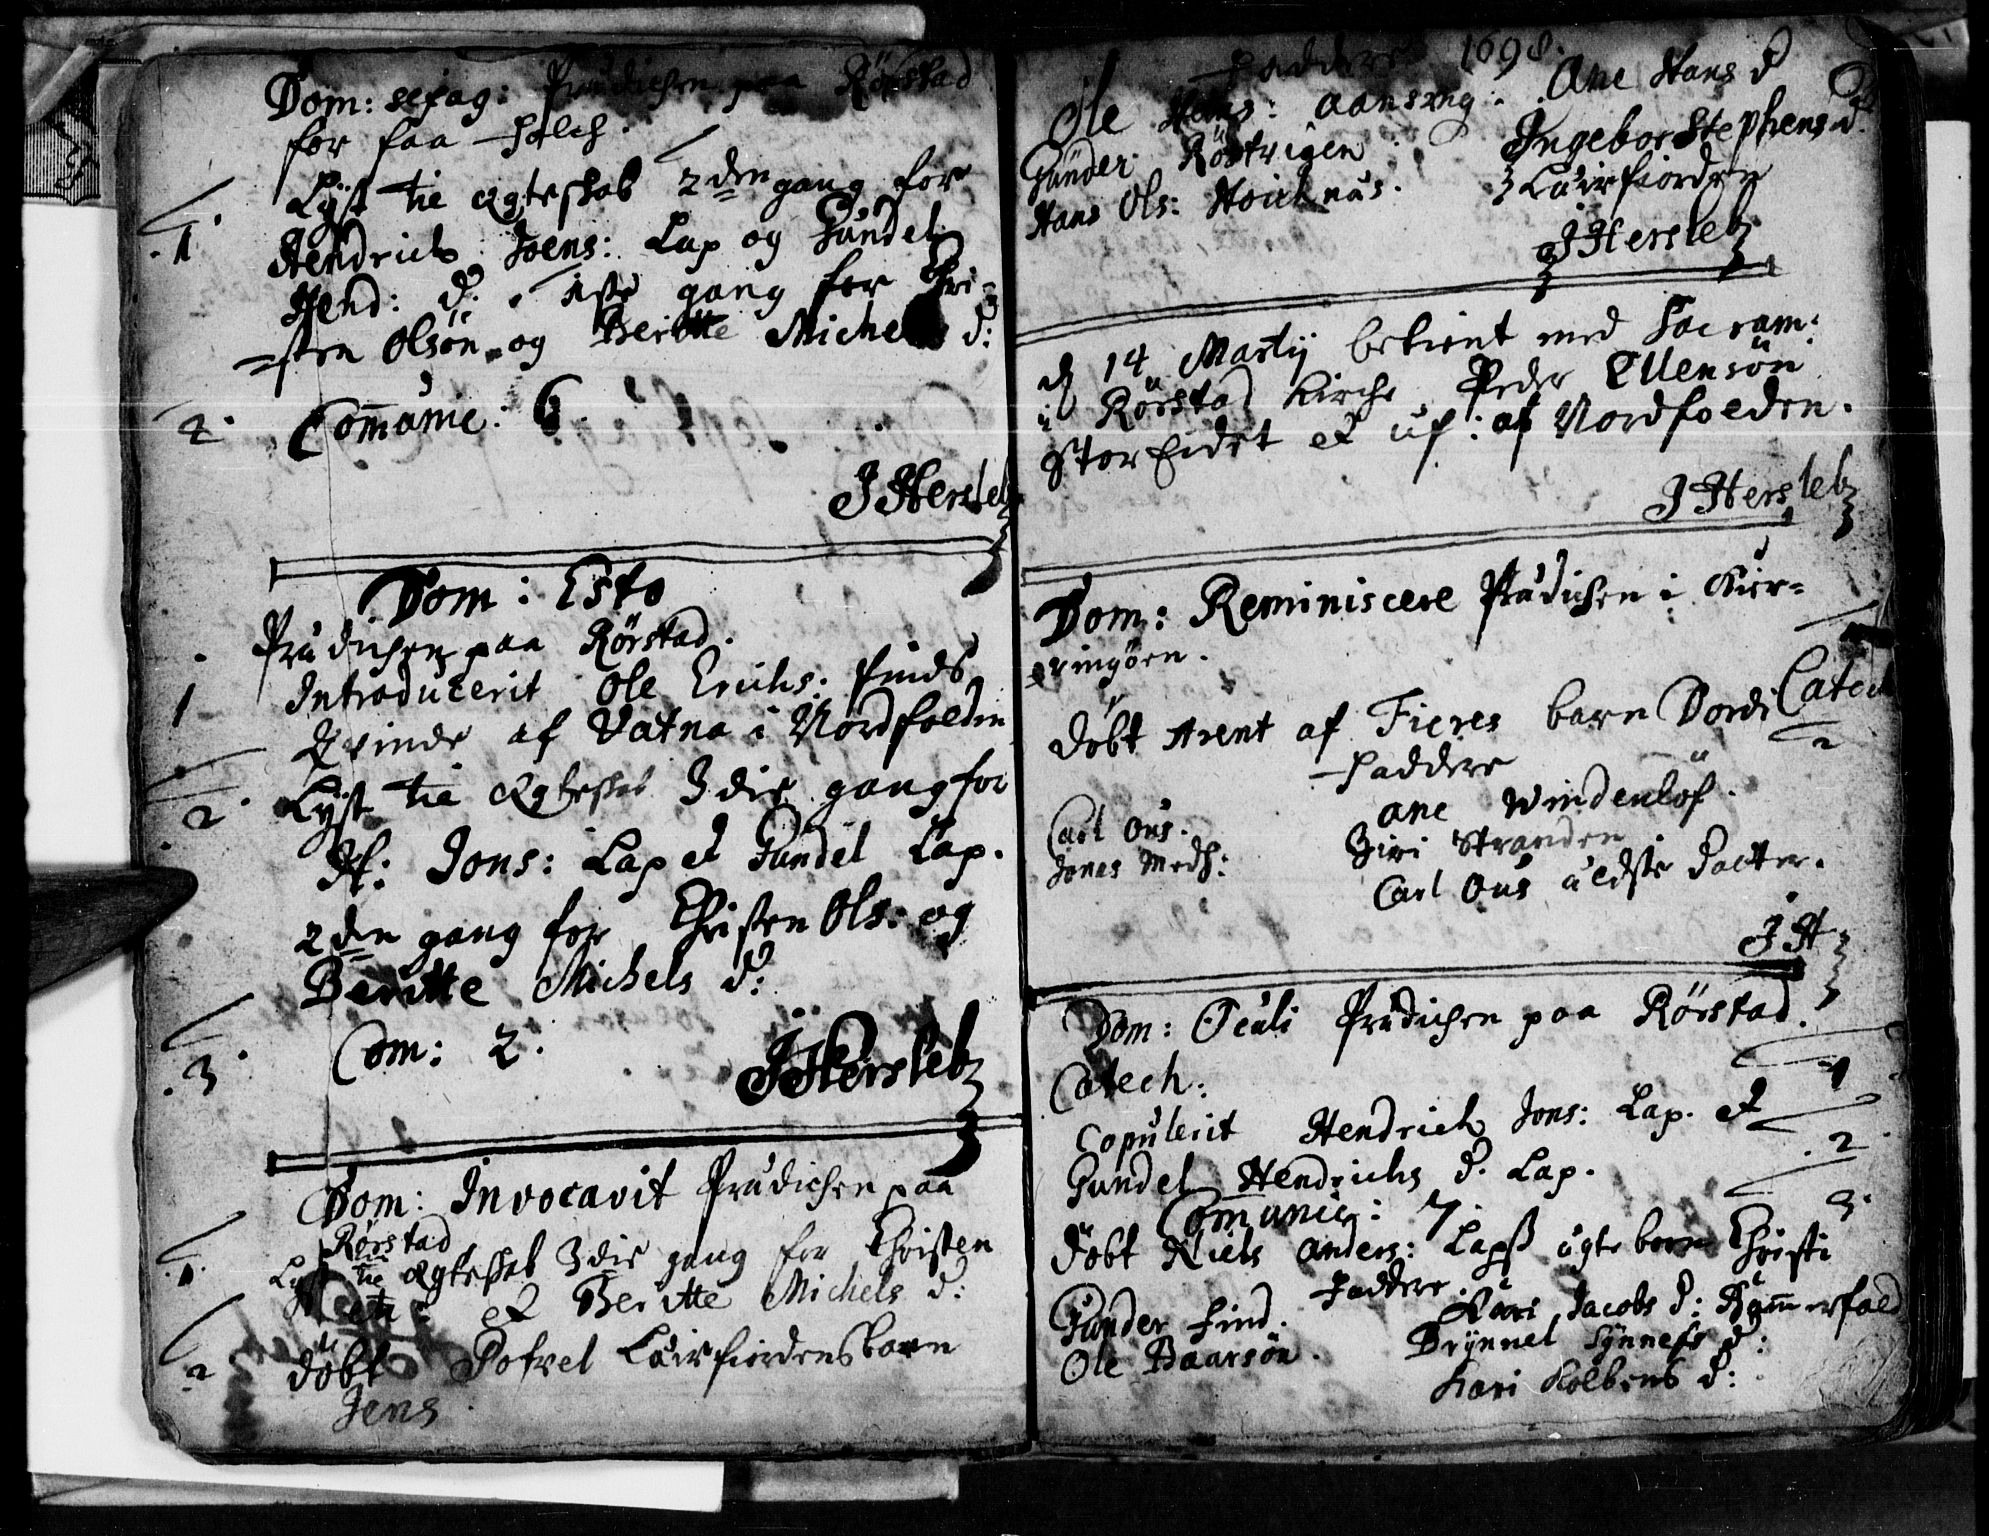 Dom: sexag: Prædichen paa Rörstad
for faa Folch.
1. Lyst til ægteskab 2den gang for
Hendrich Joens: Lap og Gundel
Hend: d: 1ste gang for Chri-
sten Olsøn og Beritte Michels d:
2. Comunic: 6.
J Hersleb
Dom: Esto
Prædichen paa Rörstad.
1 Introducerit Ole Erichs: Finds
Qvinde af Vatna i Nordfolden
2. Lyst til ægteskab 3die gang for
H: Jons: Lap et Gundel Lap.
2den gang for Christen Ols: og
Beritte Michels d:
3. Com: 2.
J Hersleb
Dom: Invocavit Prædichen paa
Rörstad
1. Lyst til ægteskab 3die gang for Christen
et Beritte Michels d:
2 döbt Povel Lairfiordens barn
Jens
Faddere 1698.
Ole Hans: Aansong. Ane Hans d
Gunder Röstvigen Ingebor Stephens d.
Hans Ols: Hoichnæs. Lairfiorden
J Hersleb
d 14 Martij betient med Sacram:
i Rörstad Kirche Peder Ellensön
StorEidet et ux: af Nordfolden.
J Hersleb
Dom: Reminiscere Prædichen i Kier-
ringöen.
Catech
2 döbt Arent af Fieres barn Dordi
Faddere
Ane Windenlöf.
Carl Ous. Siri Stranden
Jonas Medh: Carl Ous ældste datter.
J H
Dom: Oculi Prædichen paa Rörstad.
Catech. 1
Copulerit Hendrich Jons: Lap. et
2. Gundel Hendrichs d. Lap.
Comunic: 7. 3.
döbt Niels Anders: Laps ægte barn Christi
Faddere.
Gunder Find. Kari Jacobs d: Rommerfold
Ole Baarsön. Brynnel Synnefs d:
Kari Kolbens d: